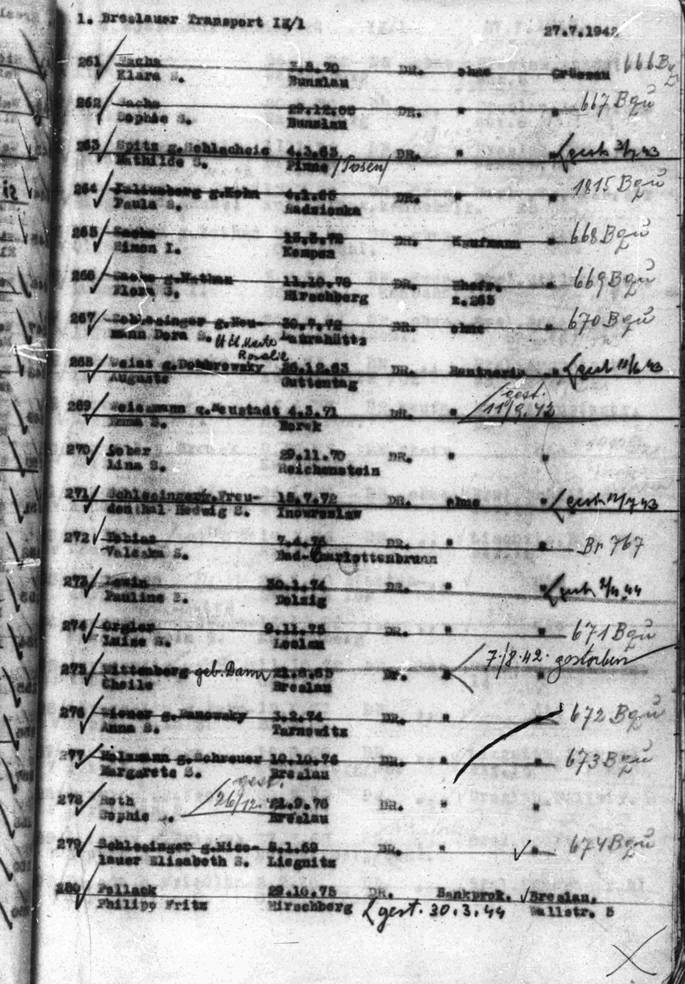 1. Breslauer Transport IX/1 27.7.1942
261 Sachs 2.8.70 DR. ohne Grüssau 666 Bq
Klara S. Bunzlau
262 Sachs 29.12.68 DR. " " 667 Bqü
Sophie S. Bunzlau
263 Spitz g. 4.3.63 DR. " " gest. 43
Mathilde S. Pinne /Posen/
264 g.Kohn DR. " " 1815 Bqü
Paula S. Radzionka
265 Sachs DR. Kaufmann " 668 Bqü
Simon I. Kempen
266 Sachs g.Nathan 11.10.76 DR. Ehefr. " 669 Bqü
Flora S. Hirschberg z.265
267 Schlesinger g.Neu- 30.7.72 DR. ohne " 670 Bqü
mann Dora S. Laurahütte
Rosalie
268 Weiss g.Dombrowsky 26.12.63 DR. Rentnerin " gest. 43
Auguste Guttentag
269 Weissmann g.Neustadt 4.3.71 DR. " gest. 11/9.42
Emma S.
270 29.11.70 DR. " "
Lina S. Reichenstein
271 Schlesinger g.Freu- 15.7.72 DR. ohne " gest. 43
denthal Hedwig S. Inowraslaw
272 Tobias 7.4.75 DR. " " Br 767
Valeska S. Bad-Charlottenbrunn
273 Lewin 30.1.74 DR. " " gest. 44
Pauline S. Dolzig
274 Orgler 9.11.75 DR. " " 671 Bqü
Luise S. Loslau
275 Wittenberg geb. Damm 21.8.65 Dr. " 7./8.42. gestorben
Cheile Breslau
276 Wiener g.Danowsky 3.2.74 DR. " " 672 Bqü
Anna S. Tarnowitz
277 Holzmann g.Schreuer 10.10.76 DR. " " 673 Bqü
Margarete S. Breslau
278 Roth gest. 26/12. 21.9.76 DR. " "
Sophie S. Breslau
279 Schlesinger g.Nico- 5.1.69 DR. " " 674 Bqü
lauer Elisabeth S. Liegnitz
280 Pollack 29.10.75 DR. Bankprok. Breslau,
Philipp Fritz Hirschberg gest. 30.3.44 Wallstr. 5